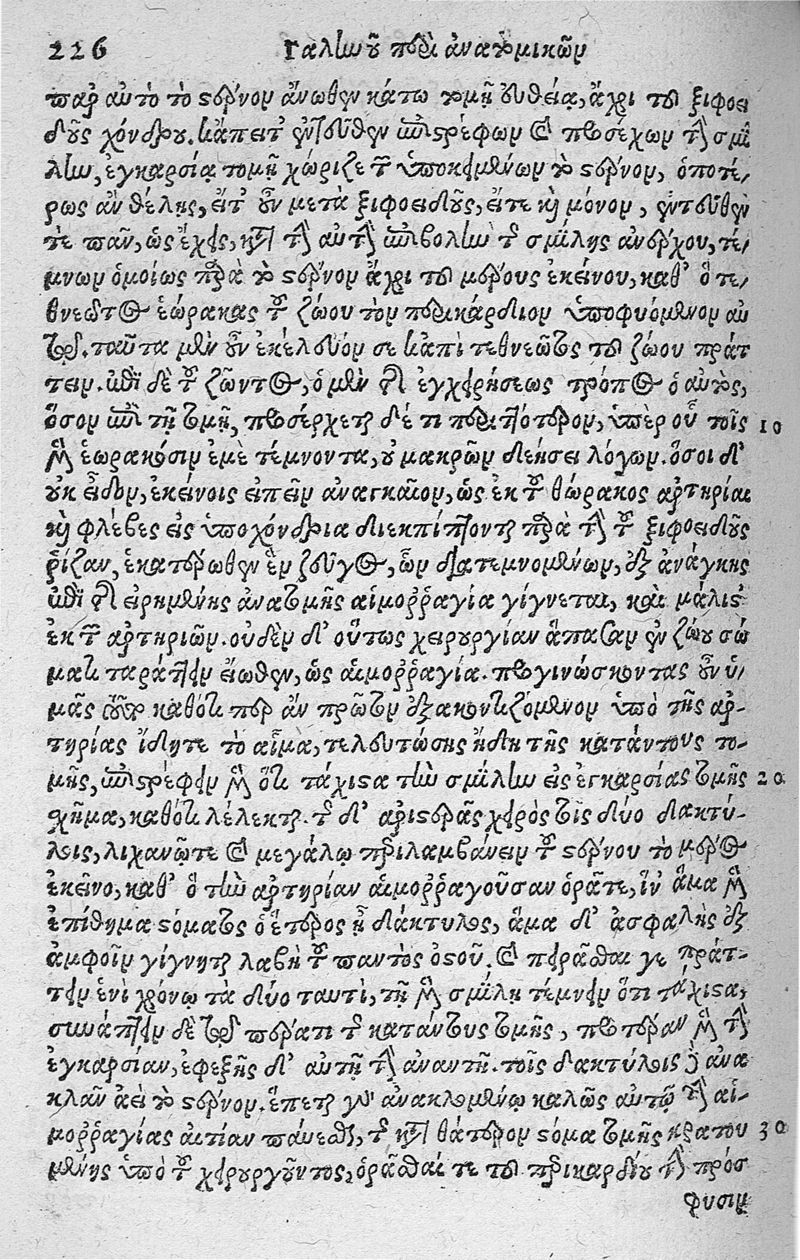 226 Γαλιωοῦ περὶ ἀνατομικῶν
παρ αὐτὸ τὸ στέρνον ἄνωθεν κάτω τομῇ εὐθείᾳ, ἄχρι του ξιφοει
δοῦς χόνδρου. κἄπειτ ἐντεῦθεν ἐπιστρέφων καὶ προσέχων τὴν σμί
λην, ἐγκαρσίᾳ τομῇ χώριζε τῶν ὑποκειμένων τὸ στέρνον, ὁποτέ/
ρως ἂν θέλῃς, εἴτ οὖν μετὰ ξιφοειδοῦς, εἴτε καὶ μόνον, ἐντεῦθεν
τε πᾶν, ὡς ἔχεις, κατὰ τὴν αὐτὴν ἐπιβολὴν τῆς σμίλης ἀνέρχου, τέ/
μνων ὁμοίως παρὰ τὸ στέρνον ἄχρι του μέρους ἐκείνου, καθ' ὃ τε/
θνεῶτος ἑώρακας τοῦ ζώου τὸν περικάρδιον ὑποφυόμενον αὐ
τῷ. ταῦτα μὲν οὖν ἐκέλευόν σε κἀπὶ τεθνεῶτος του ζώου πράτ
τειν. ἐπὶ δὲ τοῦ ζῶντος, ὁ μὲν τῆς ἐγχειρήσεως τρόπος ὁ αὐτὸς,
ὅσον ἐπὶ τῇ τομῇ, προσέρχεται δέ τι περιττότερον, ὑπὲρ οὗ τοῖς 10
μὲν ἑωρακόσιν ἐμὲ τέμνοντα, οὐ μακρῶν δεήσει λόγων. ὅσοι δ'
οὐκ εἶδον, ἐκείνοις εἰπεῖν ἀναγκαῖον, ὡς ἐκ τοῦ θώρακος ἀρτηρίαι
καὶ φλέβες εἰς ὑποχόνδρια διεκπίπτουσι παρὰ τὴν τοῦ ξιφοειδοῦς
ῥίζαν, ἑκατέρωθεν ἓν ζεῦγος, ὧν διατεμνομένων, ἐξ ἀνάγκης
ἐπὶ τῆς εἰρημένης ἀνατομῆς αἱμοῤῥαγία γίγνεται, καὶ μάλιστ
ἐκ τῶν ἀρτηριῶν. οὐδὲν δ' οὕτως χειρυργίαν ἅπασαν ἐν ζώου σώ
ματι ταράττειν εἴωθεν, ὡς αἱμοῤῥαγία. προγινώσκοντας οὖν ὑ/
μᾶς χρὴ καθότι περ ἂν πρῶτον ἐξακοντιζόμενον ὑπὸ τῆς ἀρ-
τηρίας ἴδητε τὸ αἷμα, τελευτώσης ἤδη τῆς κατάντους το-
μῆς, ἐπιστρέφειν μὲν ὅτι τάχιστα τὴν σμίλην εἰς ἐγκαρσίας τομῆς 20
σχῆμα, καθότι λέλεκται. τῆς δ' ἀριστερᾶς χειρὸς τοῖς δύο δακτύ-
λοις, λιχανῷ τε καὶ μεγάλῳ περιλαμβάνειν τοῦ στέρνου τὸ μέρος
ἐκεῖνο, καθ' ὃ τὴν ἀρτηρίαν αἱμοῤῥαγοῦσαν ὁρᾶτε, ἵν ἅμα μὲν
ἐπίθημα στόματος ὁ ἕτερος ᾖ δάκτυλος, ἅμα δ' ἀσφαλὴς ἐξ
ἀμφοῖν γίγνηται λαβὴ τοῦ παντὸς ὀστοῦ. καὶ πειρᾶσθαι γε πράτ-
τειν ἑνὶ χρόνῳ τὰ δύο ταυτὶ, τῇ μὲν σμίλῃ τέμνειν ὅτι τάχιστα,
συνάπτειν δὲ τῷ πέρατι τῆς κατάντους τομῆς, προτέραν μὲν τὴν
ἐγκαρσίαν, ἐφεξῆς δ' αὐτῇ τὴν ἀνάντη. τοῖς δακτύλοις δ' ἀνα
κλᾶν ἀεὶ τὸ στέρνον. ἕπεται γὰρ ἀνακλωμένῳ καλῶς αὐτῷ τὴν αἱ-
μοῤῥαγίας αἰτίαν παύεσθαι, τῆς κατὰ θάτερον στόμα τομῆς κρατου 30
μένης ὑπὸ τοῦ χειρουργοῦντος, ὁρᾶσθαί τε του περικαρδίου τὴν πρόσ
φυσιν